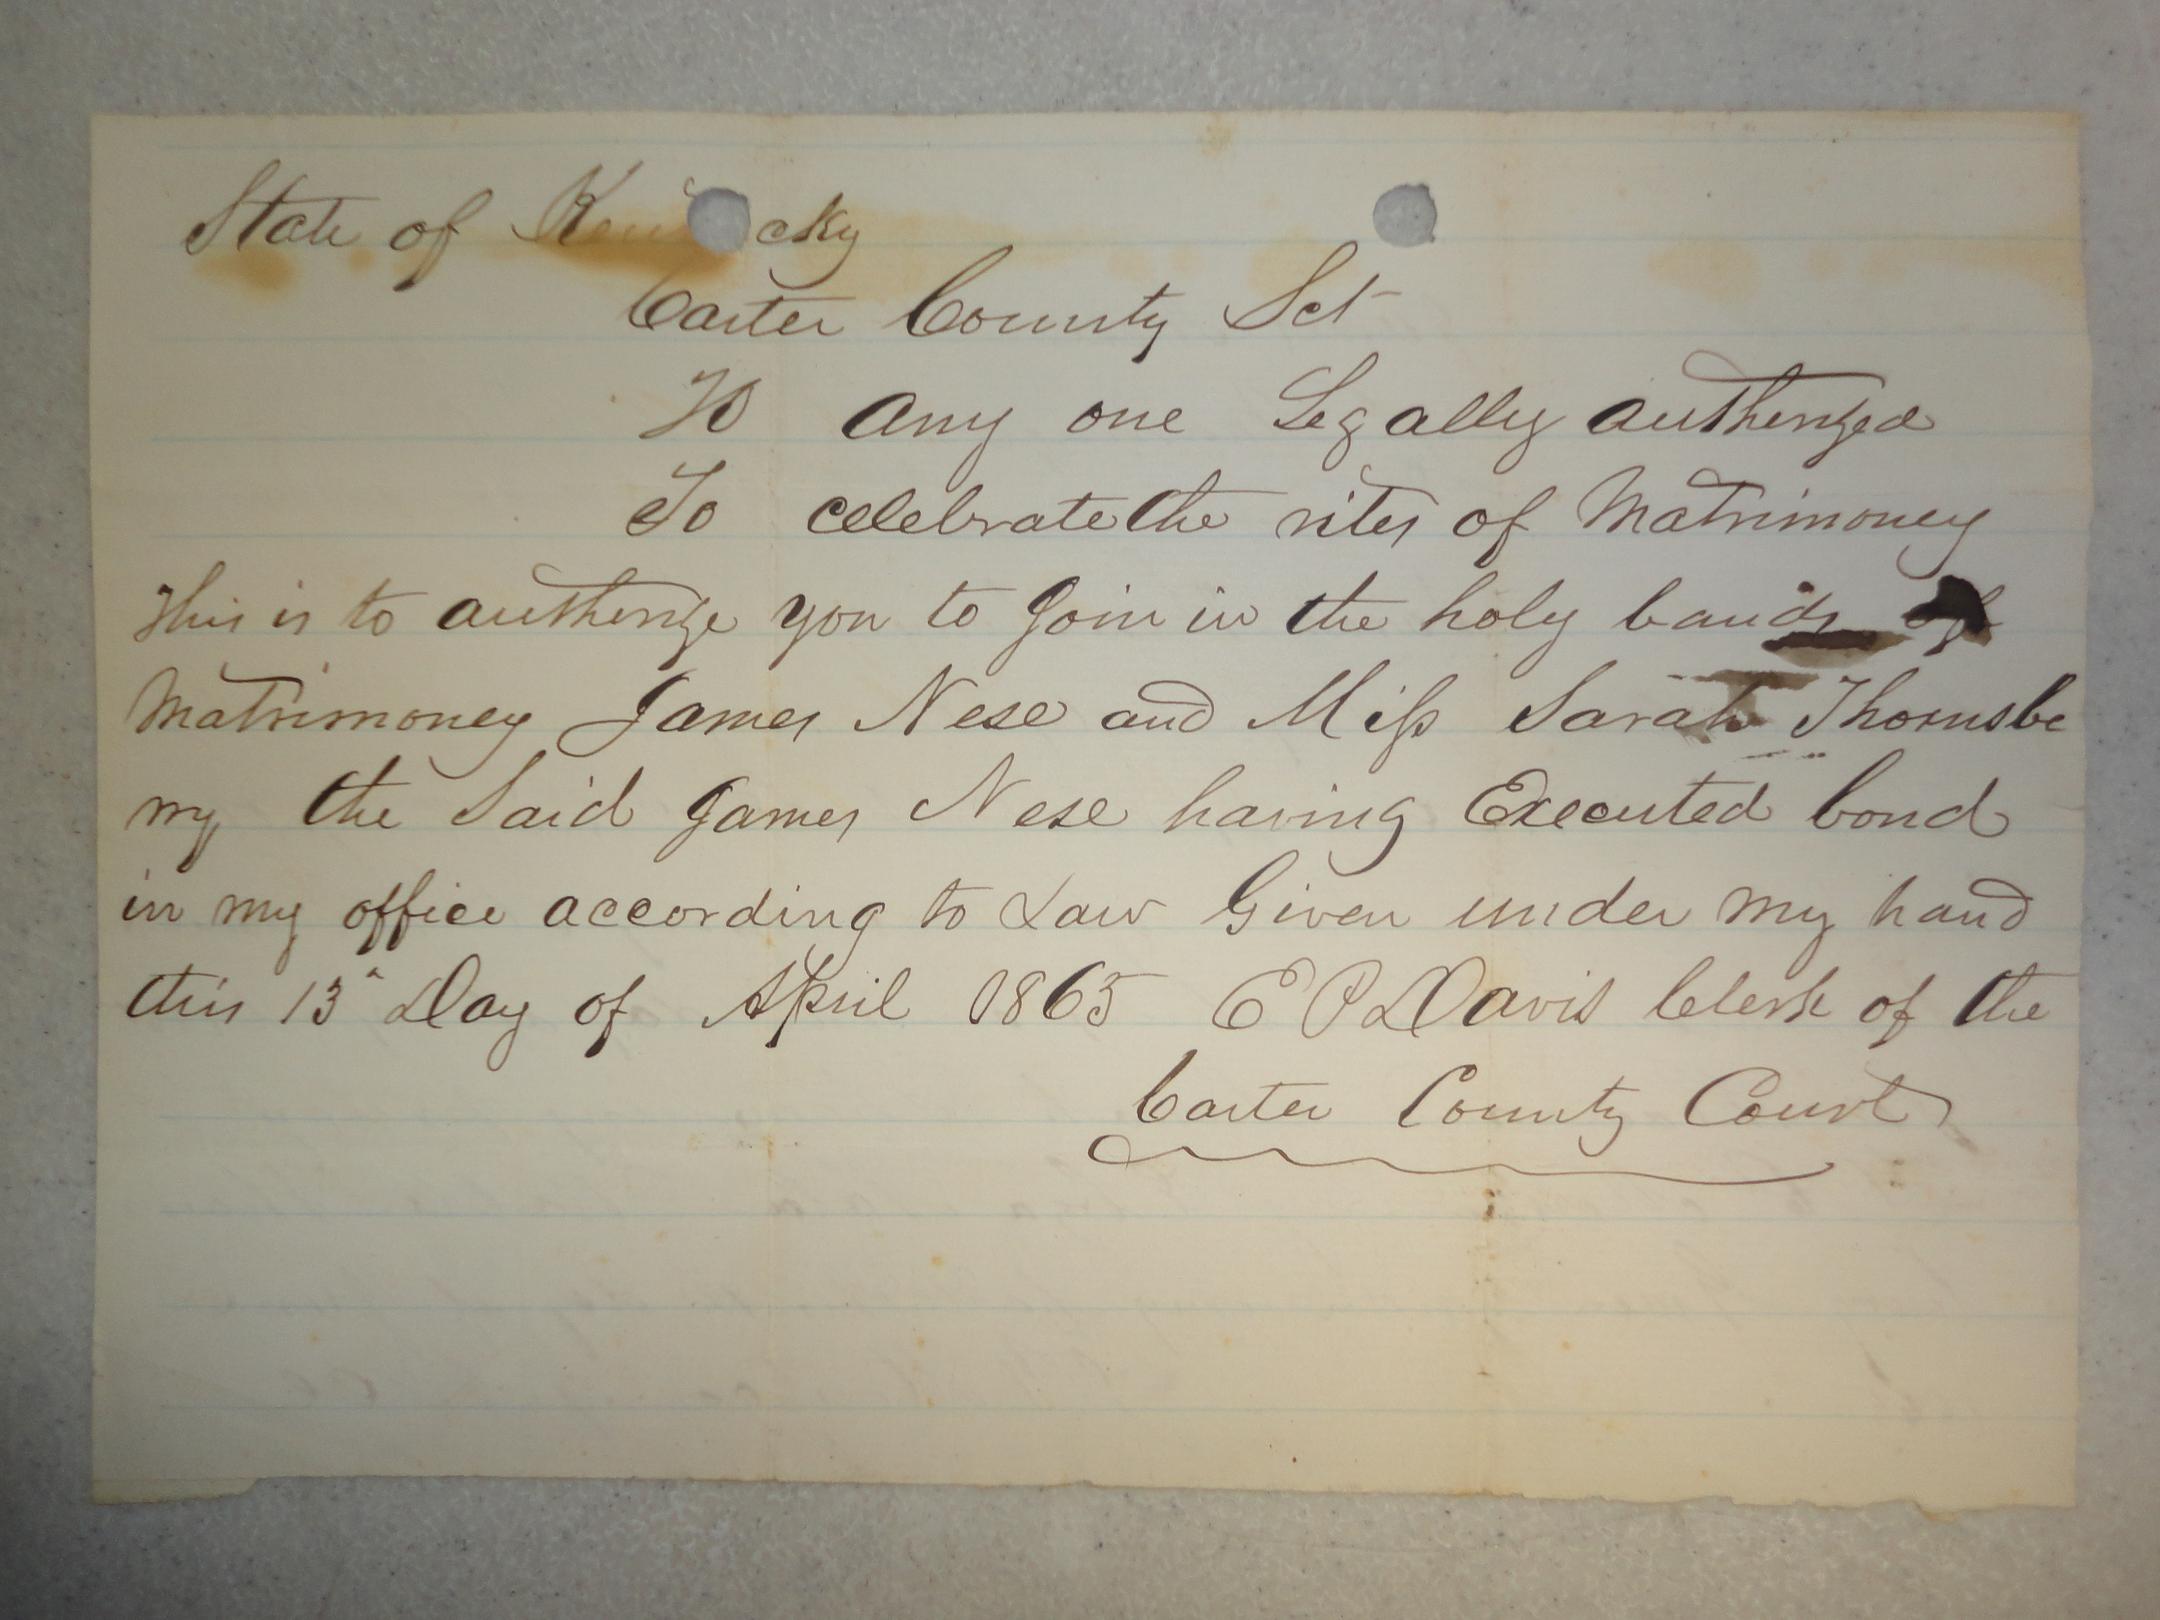 State of Ken cky
Carter County Sct
To any one Legally autherized
To celebrate the rites of Matrimoney
This is to autherize you to Join in the holy bands of
Matrimoney James Nese and Miss Sarah Thornsbe
rry the Said James Nese having Executed bond
in my office according to Law Given under my hand
this 13 Day of April 1865 E P Davis Clerk of the
Carter County Court